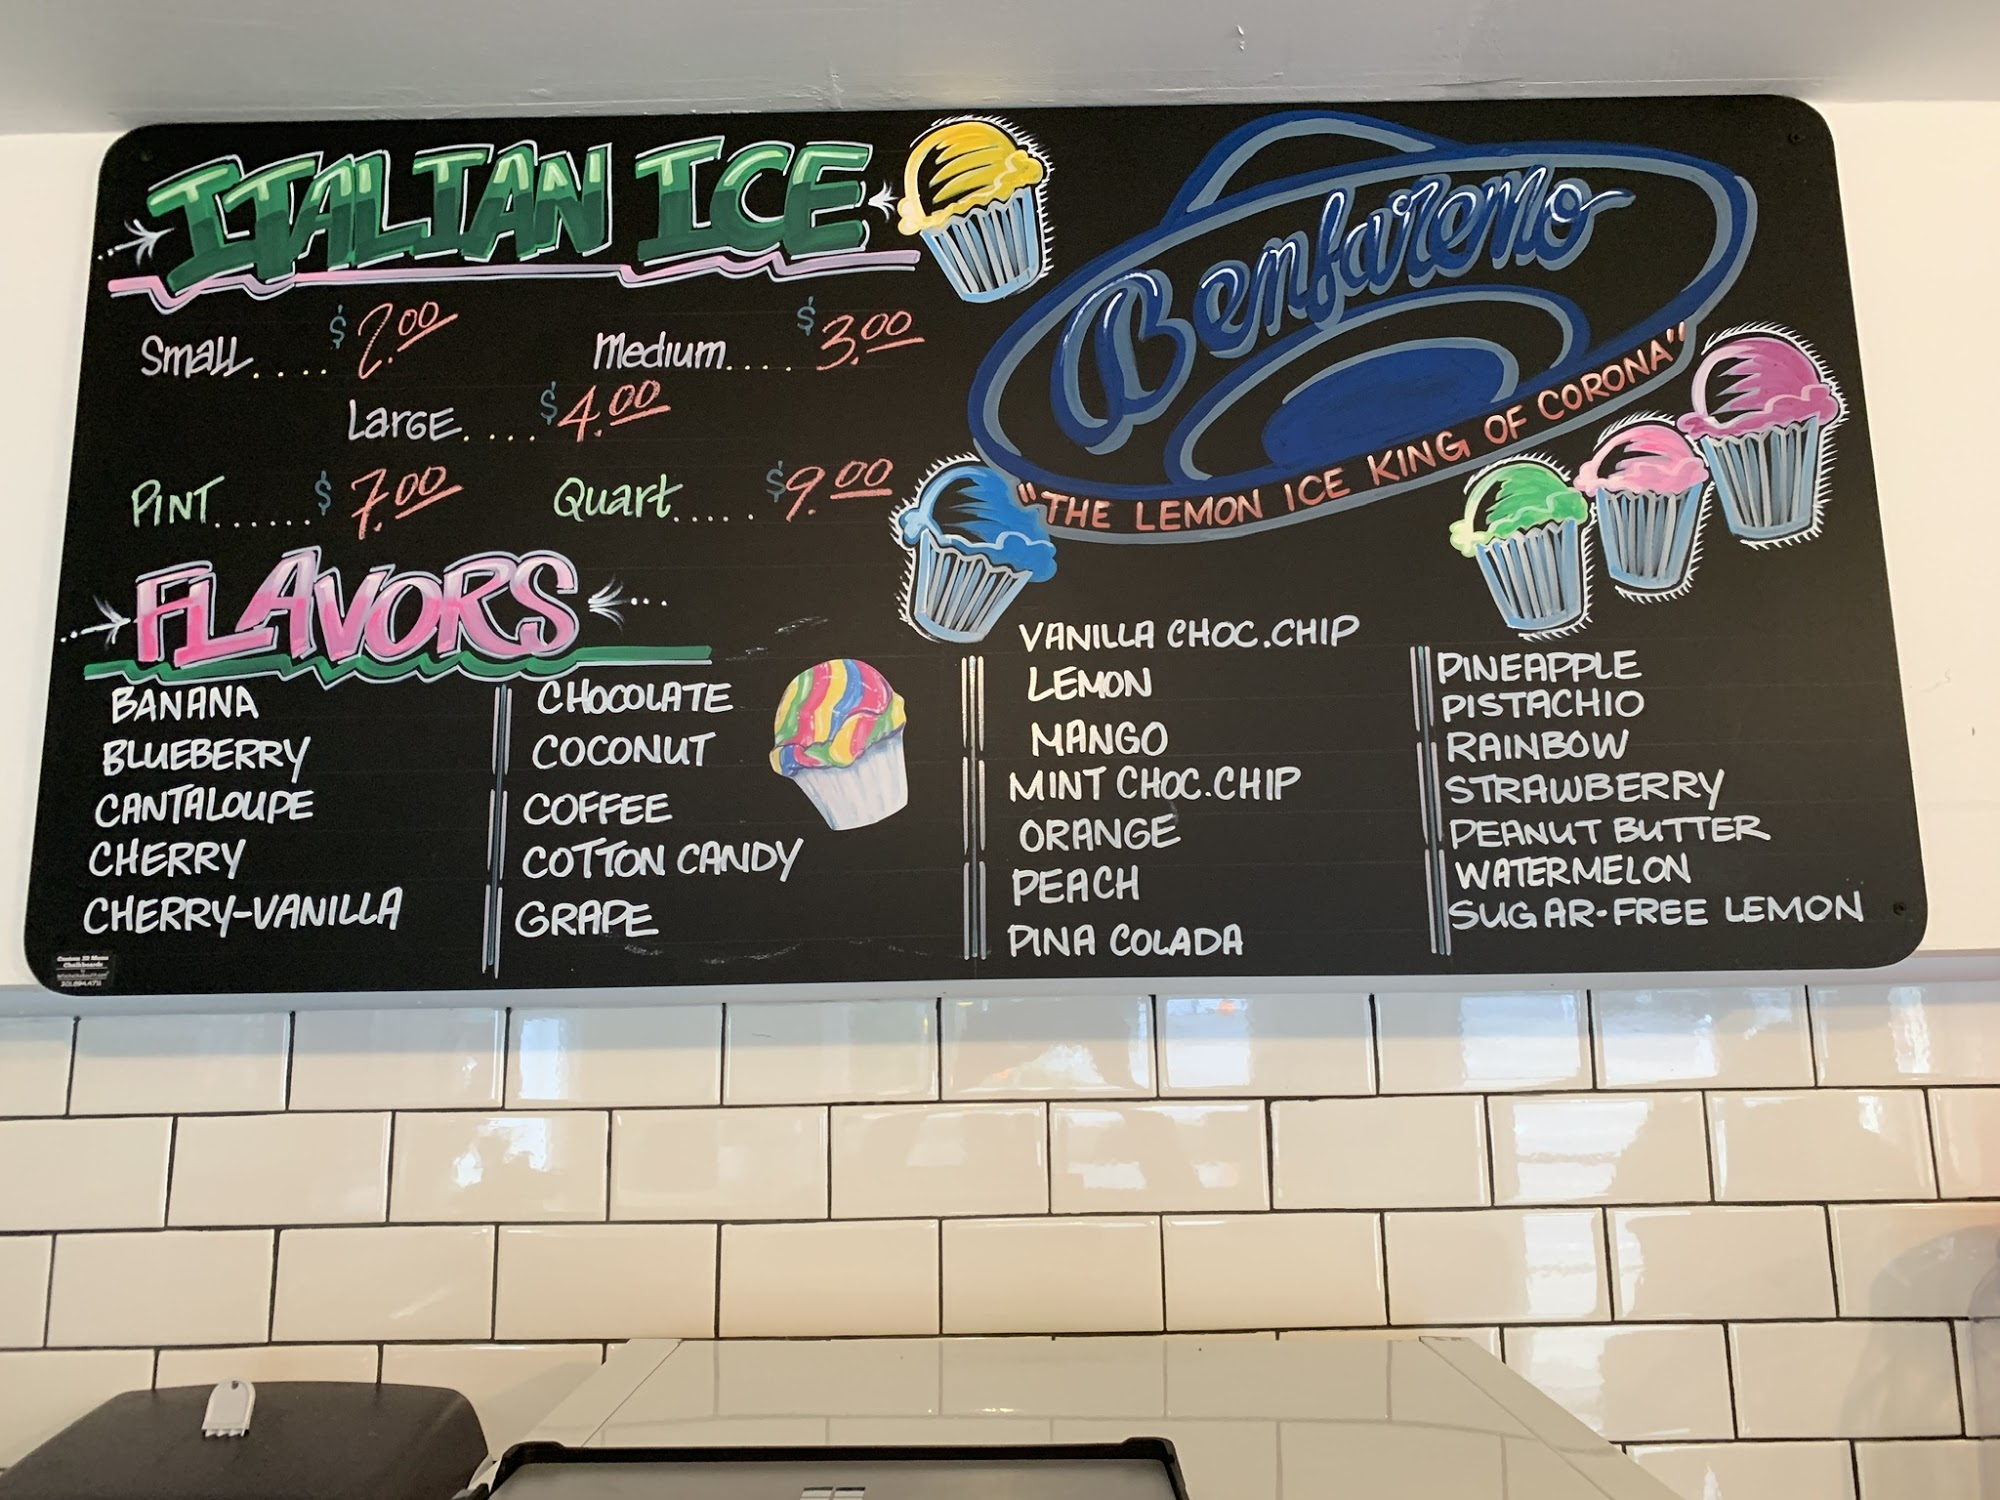 ITALIAN ICE
Small.... $2.00
Medium.... $3.00
Large.... $4.00
PINT...... $7.00
Quart..... $9.00
Benfaremo
"THE LEMON ICE KING OF CORONA"
FLAVORS
BANANA
BLUEBERRY
CANTALOUPE
CHERRY
CHERRY-VANILLA
CHOCOLATE
COCONUT
COFFEE
COTTON CANDY
GRAPE
VANILLA CHOC.CHIP
LEMON
MANGO
MINT CHOC.CHIP
ORANGE
PEACH
PINA COLADA
PINEAPPLE
PISTACHIO
RAINBOW
STRAWBERRY
PEANUT BUTTER
WATERMELON
SUGAR-FREE LEMON
Chalkboards